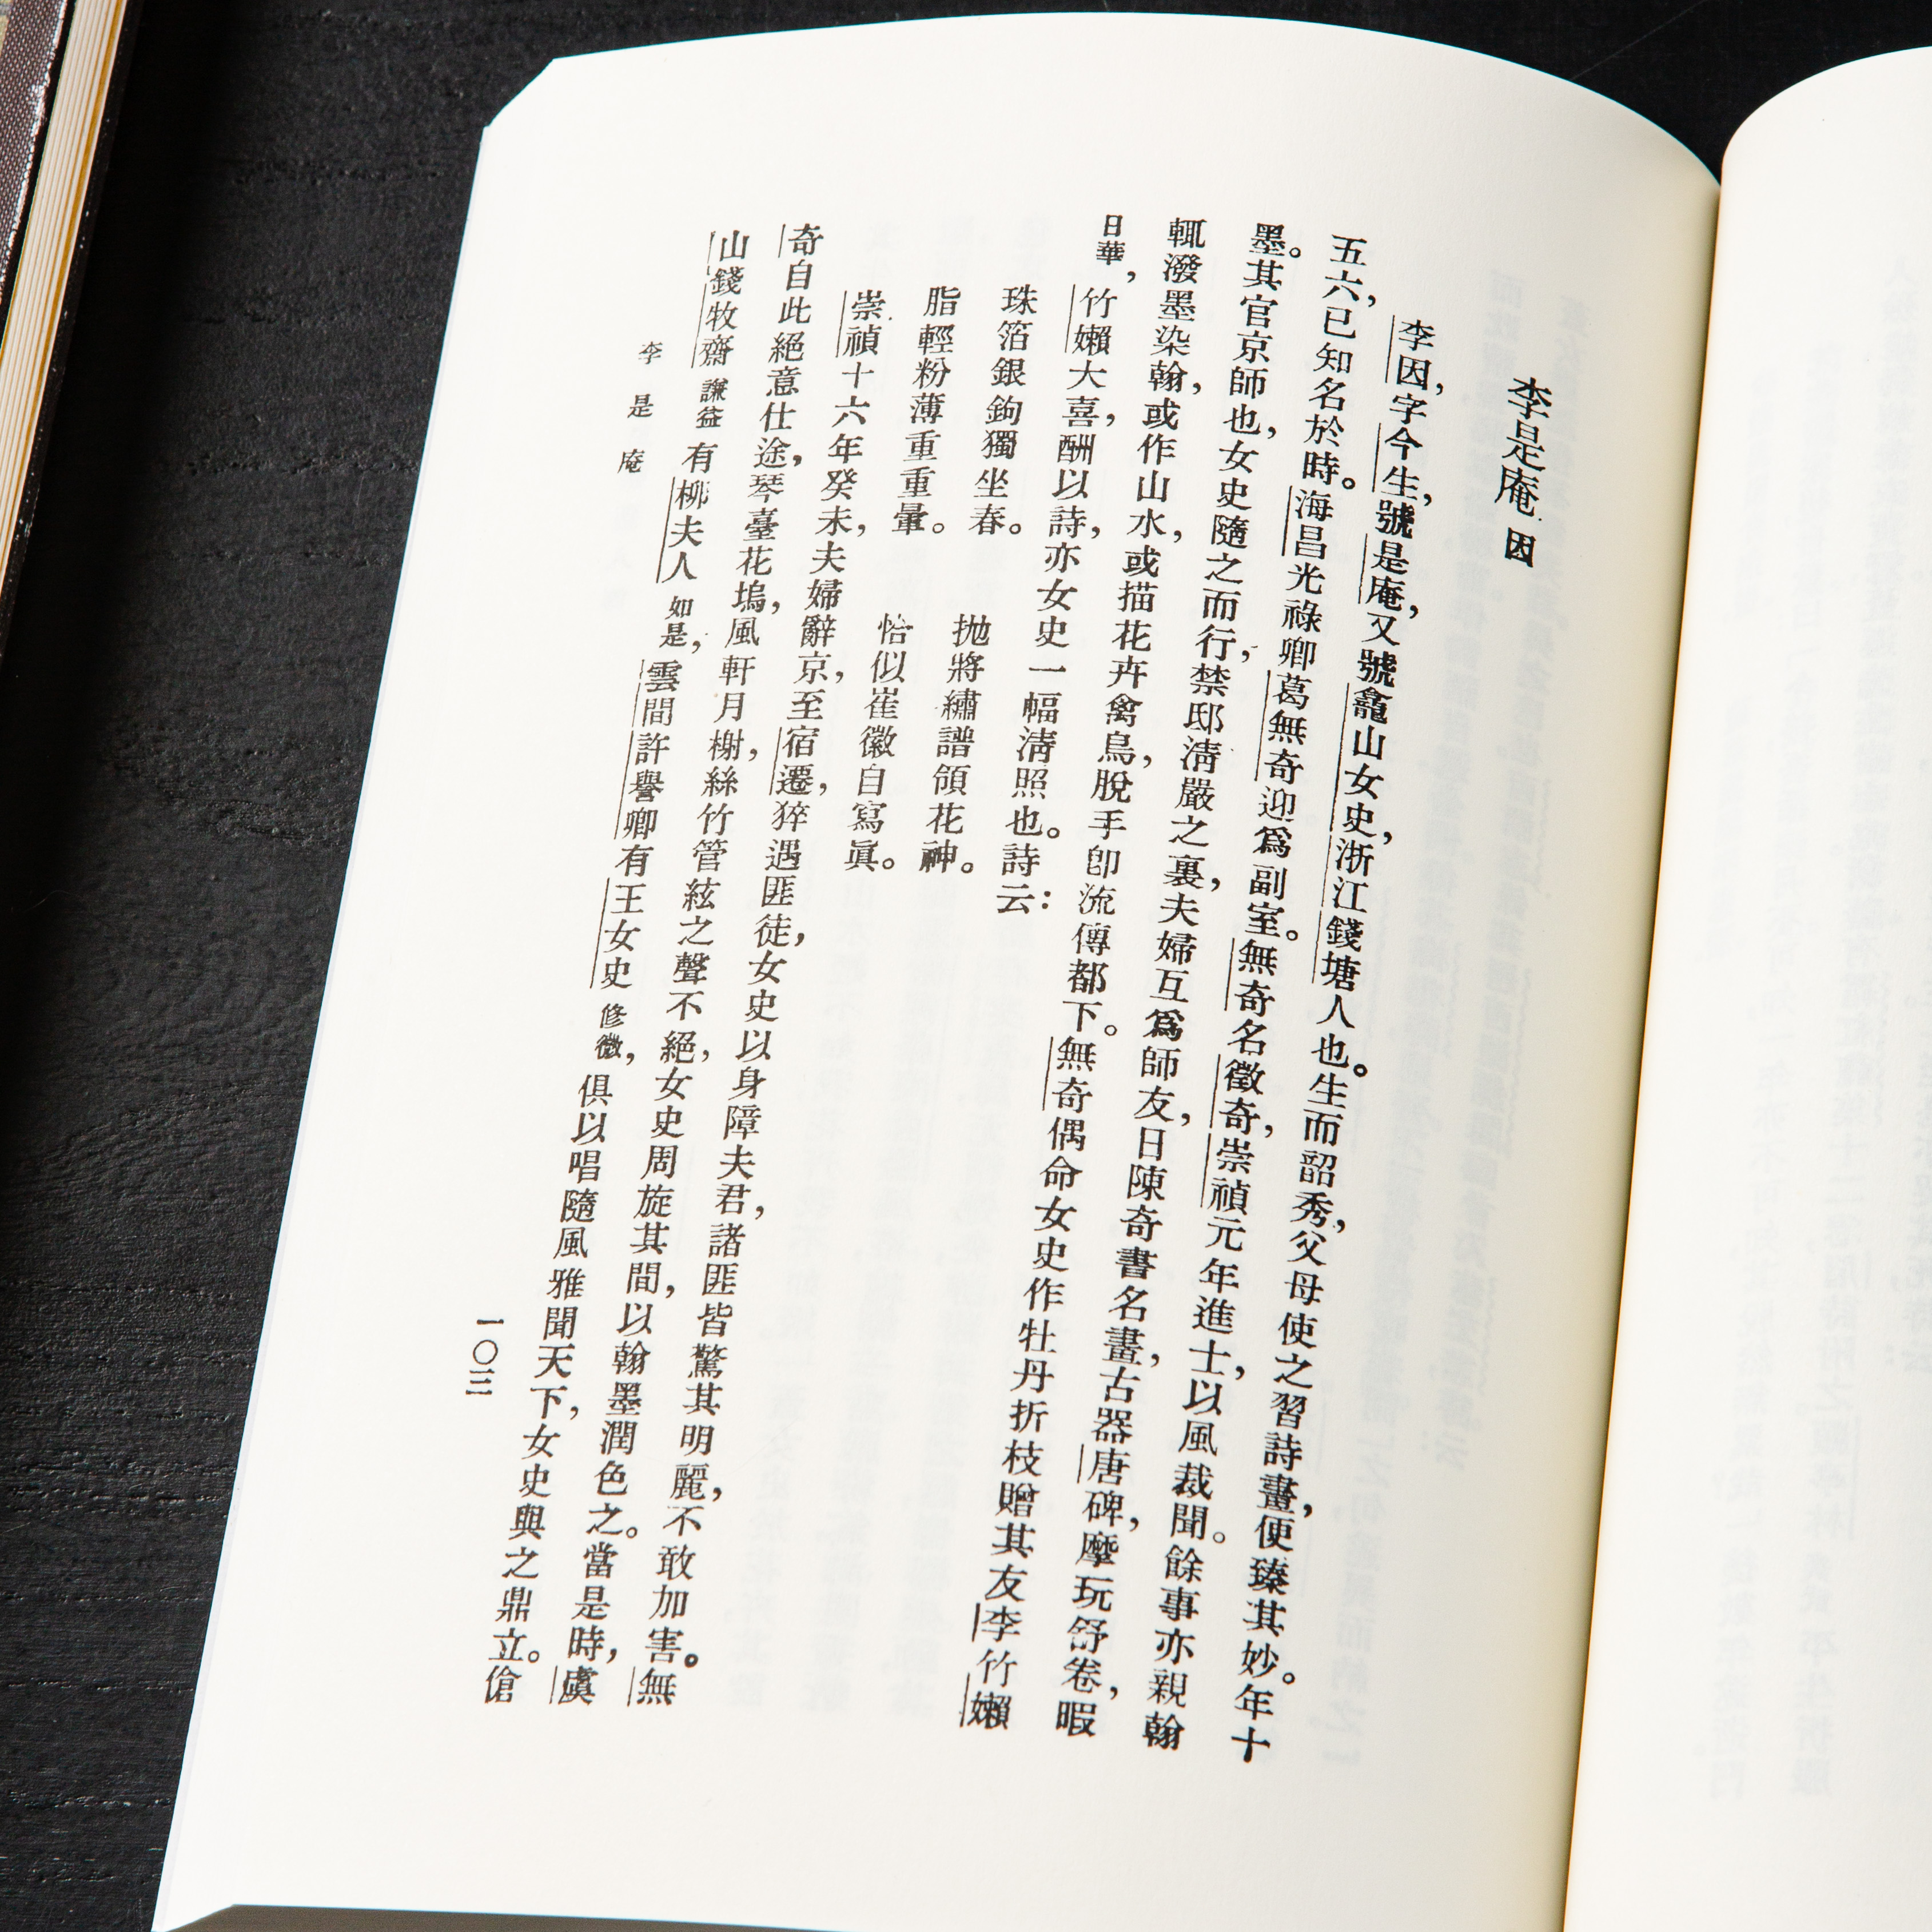 李是庵 因
李因，字今生，號是庵，又號龕山女史，浙江錢塘人也。生而韶秀，父母使之習詩畫，便臻其妙。年十
五六，已知名於時。海昌光祿卿葛無奇迎爲副室。無奇名徵奇，崇禎元年進士，以風裁聞。餘事亦親翰
墨。其官京師也，女史隨之而行，禁邸淸嚴之裏，夫婦互爲師友，日陳奇書名畫，古器唐碑，摩玩舒卷，暇
輒潑墨染翰，或作山水，或描花卉禽鳥，脫手卽流傳都下。無奇偶命女史作牡丹折枝贈其友李竹嬾
日華，竹嬾大喜，酬以詩，亦女史一幅淸照也。詩云：
珠箔銀鉤獨坐春。 拋將繡譜領花神。
脂輕粉薄重重暈。 恰似崔徽自寫眞。
崇禎十六年癸未，夫婦辭京，至宿遷，猝遇匪徒，女史以身障夫君，諸匪皆驚其明麗，不敢加害。無
奇自此絕意仕途，琴臺花塢，風軒月榭，絲竹管絃之聲不絕，女史周旋其間，以翰墨潤色之。當是時，虞
山錢牧齋謙益有柳夫人如是，雲間許譽卿有王女史修微，俱以唱隨風雅聞天下，女史與之鼎立。傖
李是庵
一〇三